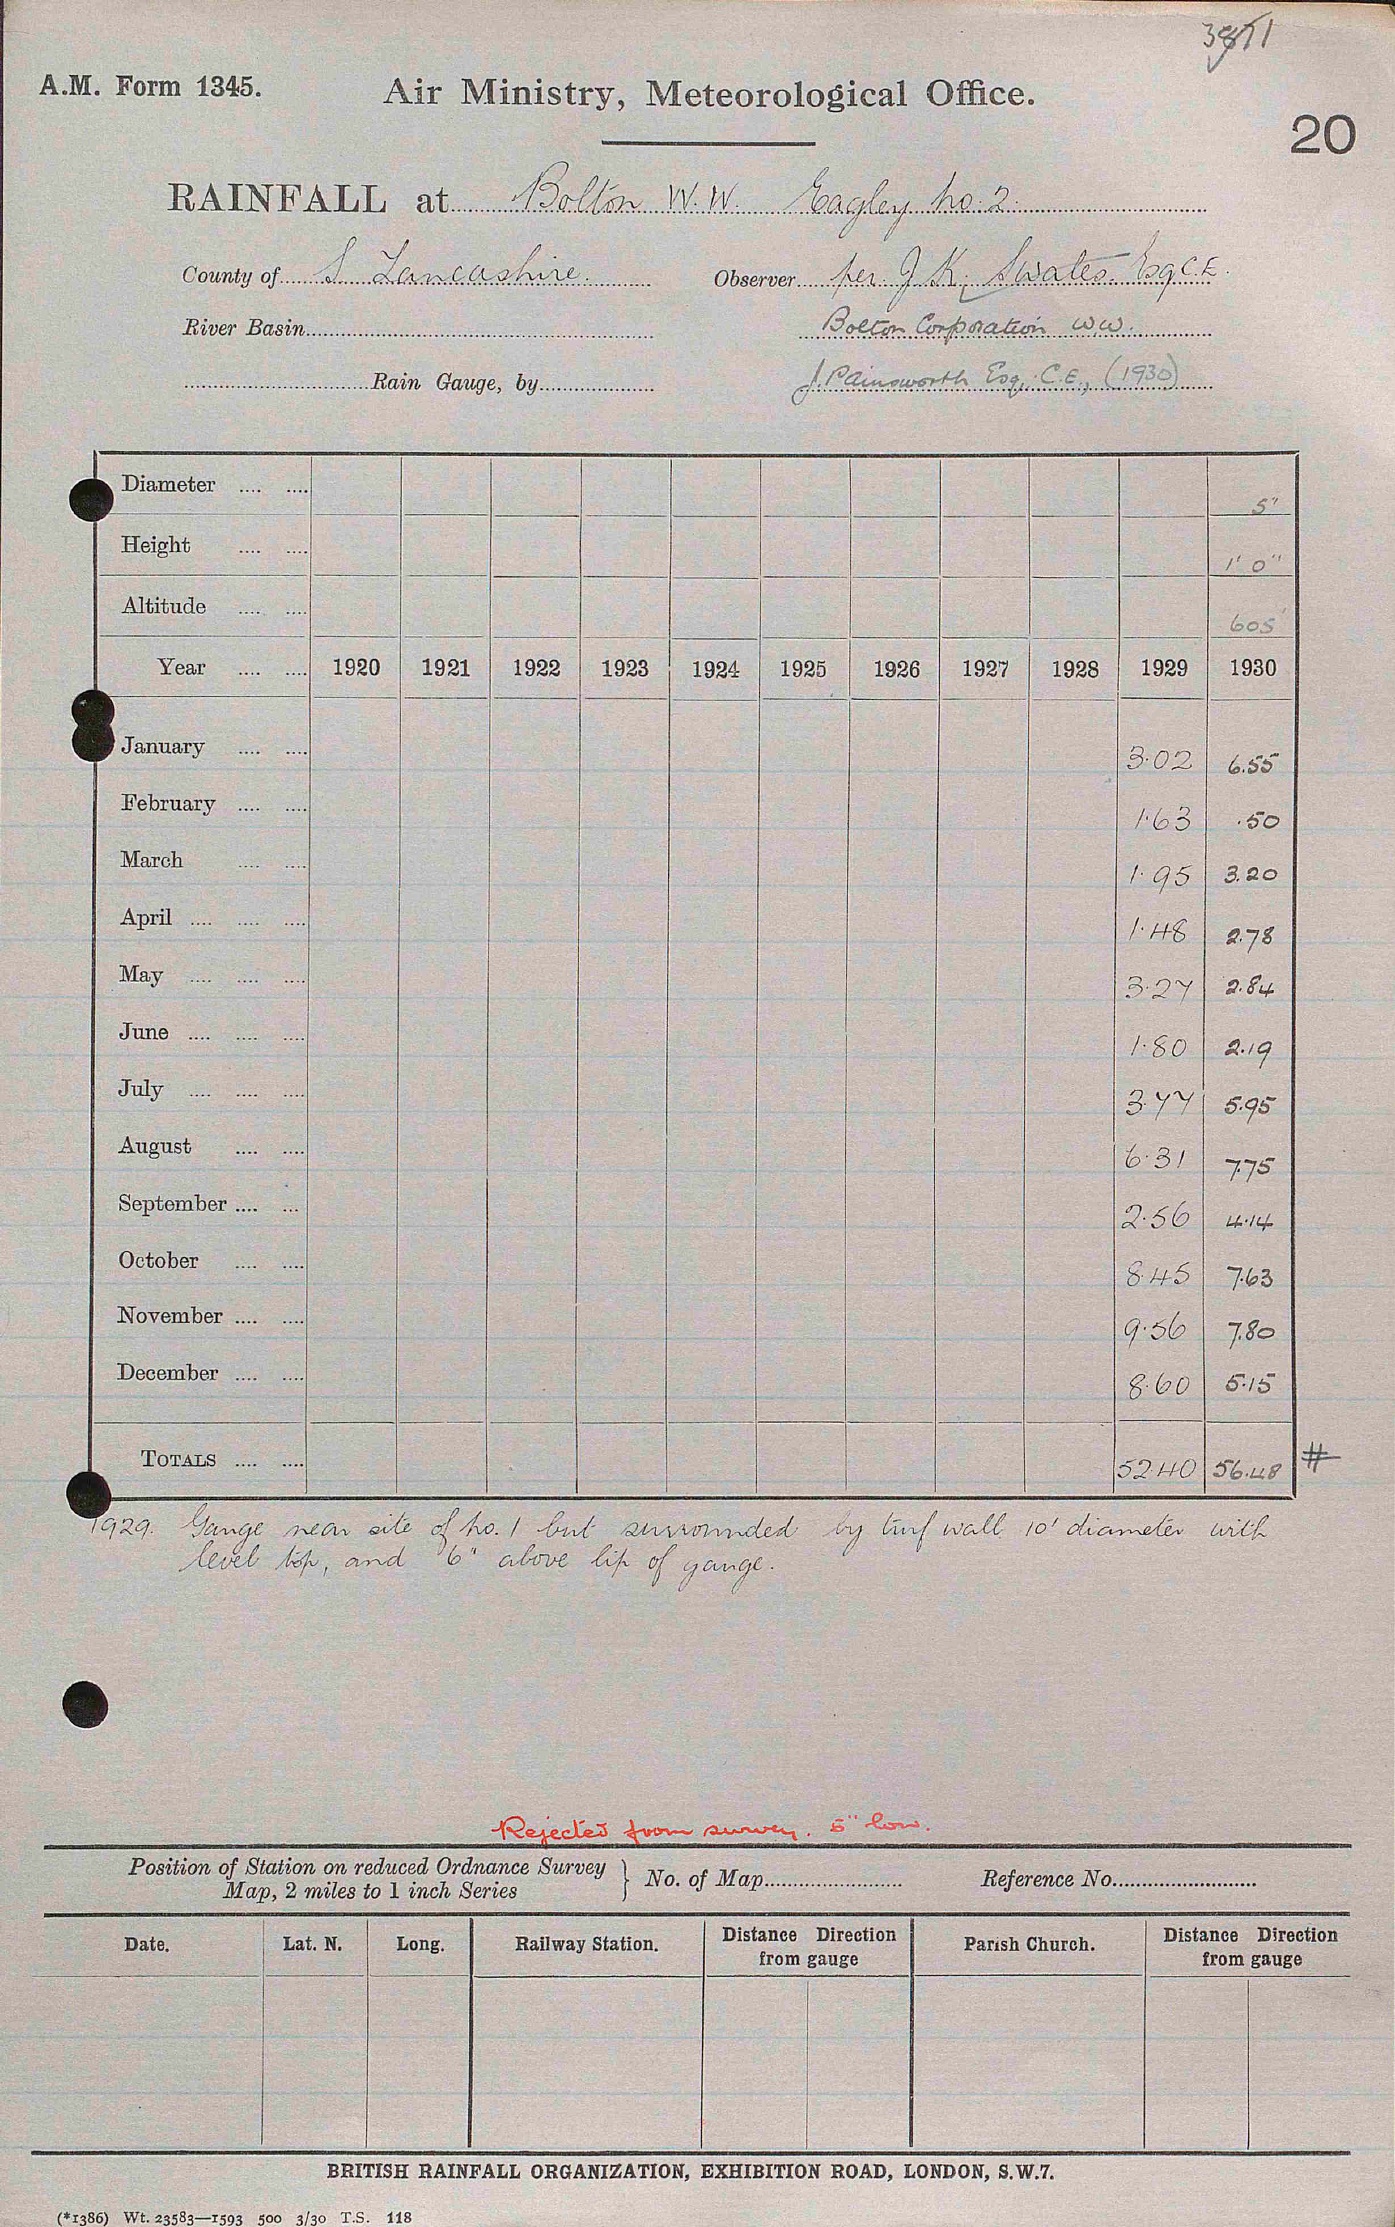 A.M. Form 1345.
Air Ministry, Meteorological Office.
20
RAINFALL at Bolton W.W. Eagley No. 2.
County of S. Lancashire. Observer per J. K. Swales. Esq C.E.
River Basin Bolton Corporation W.W.
Rain Gauge, by J. Painsworth Esq. C.E., (1930)
Diameter .... .... 5"
Height .... .... 1' 0"
Altitude .... .... 605'
Year .... .... 1920 1921 1922 1923 1924 1925 1926 1927 1928 1929 1930
January .... .... 3.02 6.55
February .... .... 1.63 .50
March .... .... 1.95 3.20
April .... .... .... 1.48 2.78
May .... .... .... 3.27 2.84
June .... .... .... 1.80 2.19
July .... .... .... 3.77 5.95
August .... .... 6.31 7.75
September .... ... 2.56 4.14
October .... .... 8.45 7.63
November .... .... 9.56 7.80
December .... .... 8.60 5.15
TOTALS .... .... 52.40 56.48 #
1929. Gauge near site of No. 1 but surrounded by turf wall 10' diameter with
level top, and 6" above lip of gauge.
Rejected from survey. 5" low.
Position of Station on reduced Ordnance Survey
Map, 2 miles to 1 inch Series } No. of Map Reference No.
Date. Lat. N. Long. Railway Station. Distance Direction from gauge Parish Church. Distance Direction from gauge
BRITISH RAINFALL ORGANIZATION, EXHIBITION ROAD, LONDON, S.W.7.
(*1386) Wt. 23583—1593 500 3/30 T.S. 118